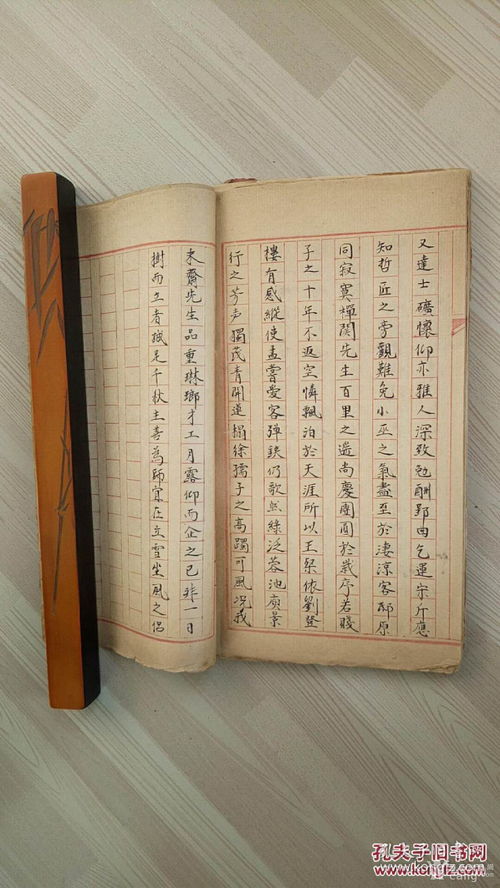 又達士礦懷仰亦雅人深致勉酬郢曲乞運宗斤應
知哲匠之旁觀難免小巫之氣盡至於凄涼客邸原
同寂寞禪関先生百里之遥尚慶團圓於歲序若賤
子之十年不返空憐飄泊於天涯所以王粲依劉登
樓有感縱使孟嘗愛客彈鋏仍歌然綠泛蓉池庾景
行之芳声獨茂青開蓮榻徐孺子之高躅可風况我
東齋先生品重琳瑯才工月露仰而企之已非一日
樹而立者祇足千秋主善為師宜在立雪坐風之侣
孔夫子旧书网
www.kongfz.com